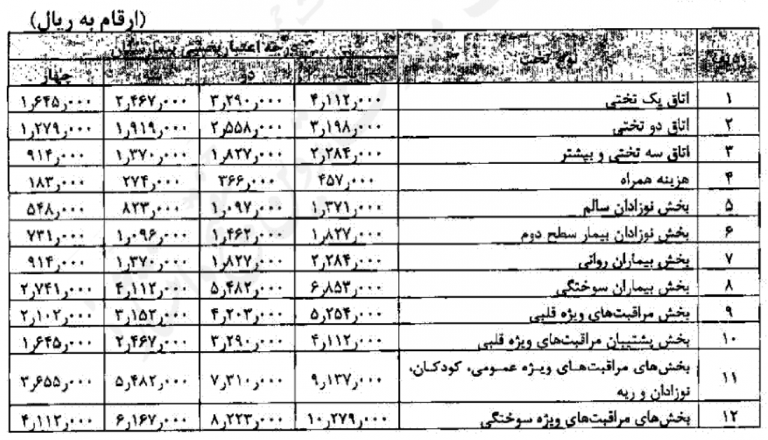 (ارقام به ریال)
ردیف نوع تخت درجه اعتباربخشی بیمارستان
یک دو سه چهار
۱ اتاق یک تختی ۴٫۱۱۲٫۰۰۰ ۳٫۲۹۰٫۰۰۰ ۲٫۴۶۷٫۰۰۰ ۱٫۶۴۵٫۰۰۰
۲ اتاق دو تختی ۳٫۱۹۸٫۰۰۰ ۲٫۵۵۸٫۰۰۰ ۱٫۹۱۹٫۰۰۰ ۱٫۲۷۹٫۰۰۰
۳ اتاق سه تختی و بیشتر ۲٫۲۸۴٫۰۰۰ ۱٫۸۲۷٫۰۰۰ ۱٫۳۷۰٫۰۰۰ ۹۱۴٫۰۰۰
۴ هزینه همراه ۴۵۷٫۰۰۰ ۳۶۶٫۰۰۰ ۲۷۴٫۰۰۰ ۱۸۳٫۰۰۰
۵ بخش نوزادان سالم ۱٫۳۷۱٫۰۰۰ ۱٫۰۹۷٫۰۰۰ ۸۲۳٫۰۰۰ ۵۴۸٫۰۰۰
۶ بخش نوزادان بیمار سطح دوم ۱٫۸۲۷٫۰۰۰ ۱٫۴۶۲٫۰۰۰ ۱٫۰۹۶٫۰۰۰ ۷۳۱٫۰۰۰
۷ بخش بیماران روانی ۲٫۲۸۴٫۰۰۰ ۱٫۸۲۷٫۰۰۰ ۱٫۳۷۰٫۰۰۰ ۹۱۴٫۰۰۰
۸ بخش بیماران سوختگی ۶٫۸۵۳٫۰۰۰ ۵٫۴۸۲٫۰۰۰ ۴٫۱۱۲٫۰۰۰ ۲٫۷۴۱٫۰۰۰
۹ بخش مراقبت‌های ویژه قلبی ۵٫۲۵۴٫۰۰۰ ۴٫۲۰۳٫۰۰۰ ۳٫۱۵۲٫۰۰۰ ۲٫۱۰۲٫۰۰۰
۱۰ بخش پشتیبان مراقبت‌های ویژه قلبی ۴٫۱۱۲٫۰۰۰ ۳٫۲۹۰٫۰۰۰ ۲٫۴۶۷٫۰۰۰ ۱٫۶۴۵٫۰۰۰
۱۱ بخش‌های مراقبت‌های ویژه عمومی، کودکان، ۹٫۱۳۷٫۰۰۰ ۷٫۳۱۰٫۰۰۰ ۵٫۴۸۲٫۰۰۰ ۳٫۶۵۵٫۰۰۰
نوزادان و ریه
۱۲ بخش‌های مراقبت‌های ویژه سوختگی ۱۰٫۲۷۹٫۰۰۰ ۸٫۲۲۳٫۰۰۰ ۶٫۱۶۷٫۰۰۰ ۴٫۱۱۲٫۰۰۰